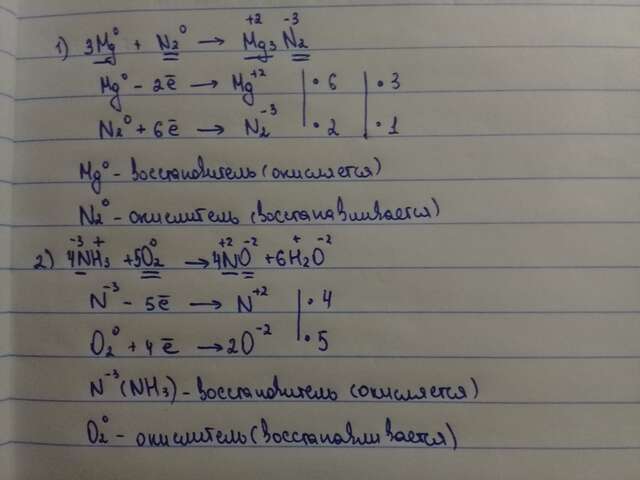 1) 3Mg⁰ + N₂⁰ → Mg₃⁺² N₂⁻³
Mg⁰ - 2ē → Mg⁺² | • 6 | • 3
N₂⁰ + 6ē → N₂⁻³ | • 2 | • 1
Mg⁰ - восстановитель (окисляется)
N₂⁰ - окислитель (восстанавливается)
2) 4N⁻³H₃⁺ + 5O₂⁰ → 4N⁺²O⁻² + 6H₂⁺O⁻²
N⁻³ - 5ē → N⁺² | • 4
O₂⁰ + 4ē → 2O⁻² | • 5
N⁻³ (NH₃) - восстановитель (окисляется)
O₂⁰ - окислитель (восстанавливается)